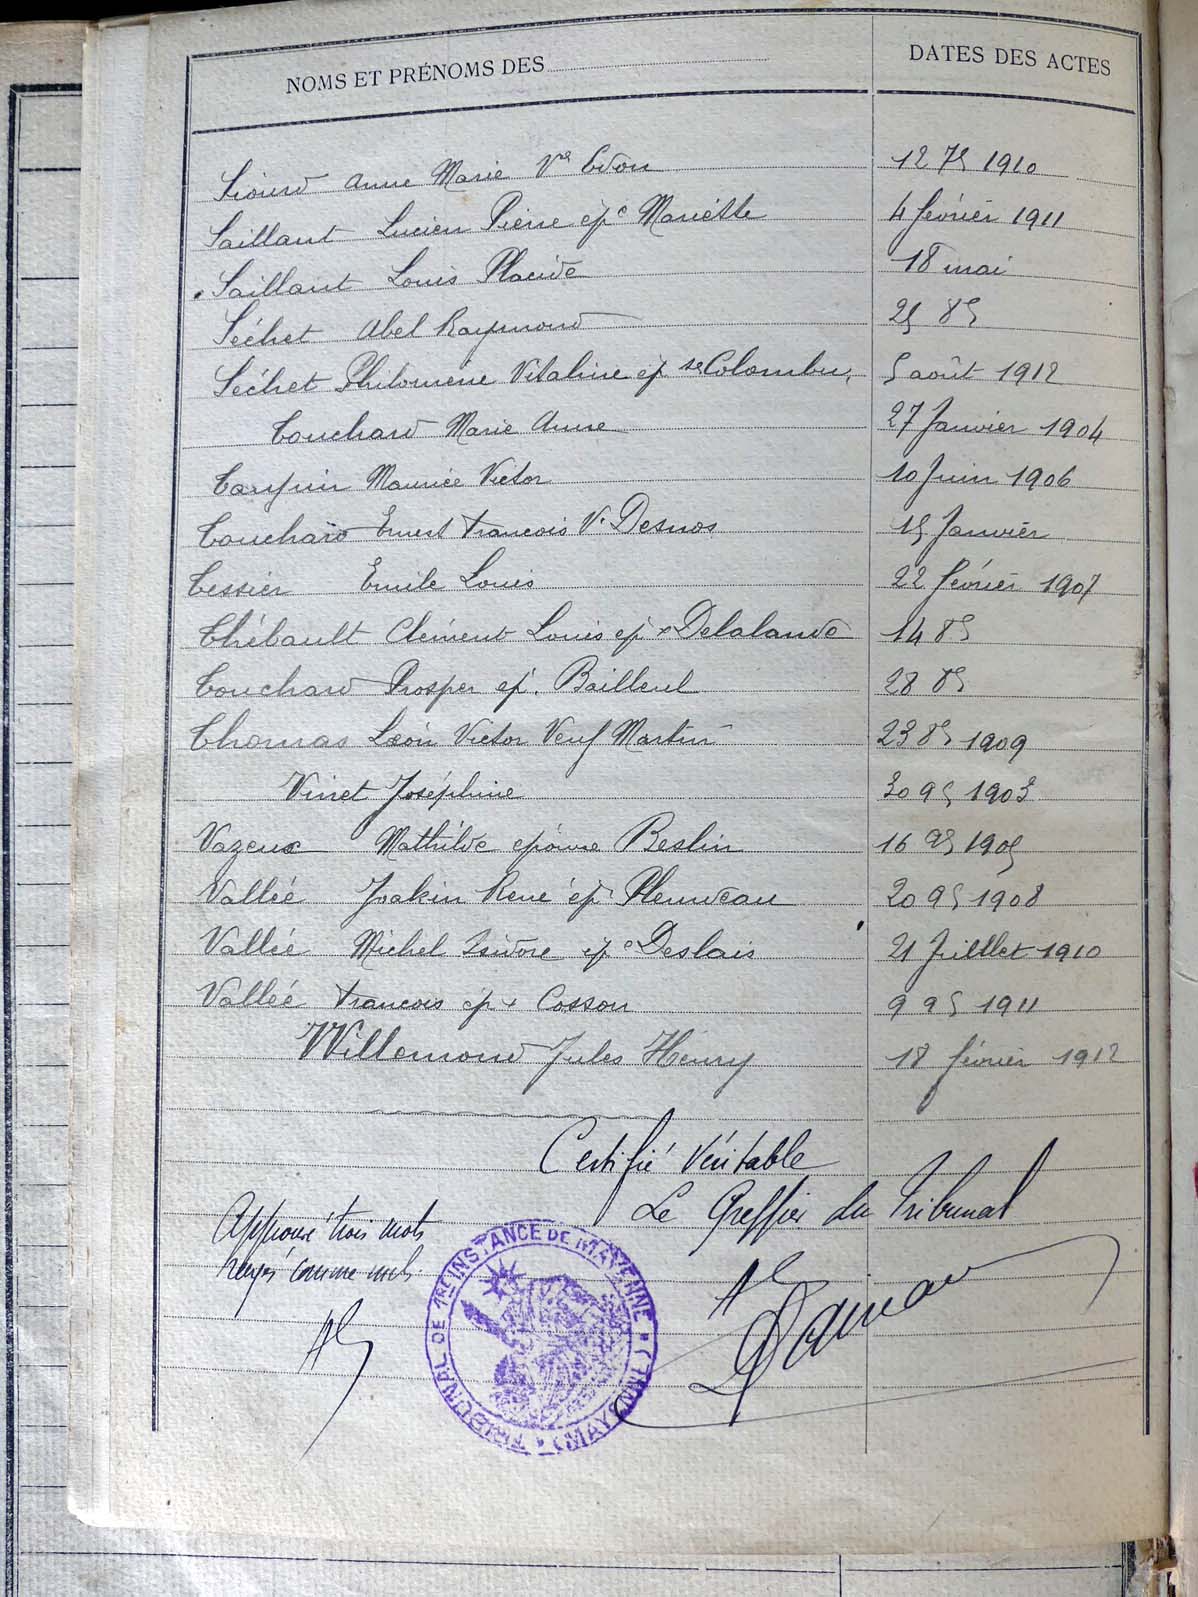 NOMS ET PRÉNOMS DES
DATES DES ACTES
Siourd Anne Marie Vve Edon 12 7bre 1910
Saillant Lucien Pierre épx Mariette 4 février 1911
Saillant Louis Placide 18 mai
Séchet Abel Raymond 25 8bre
Séchet Philomène Vitaline ép se Colombu 5 août 1912
Couchard Marie Anne 27 Janvier 1904
Taupin Maurice Victor 10 Juin 1906
Touchard Ernest Francois V. Desnos 15 Janvier
Tessier Emile Louis 22 février 1907
Thébault Clément Louis ép x Delalande 14 8bre
Touchard Prosper ép. Bailleul 28 8bre
Thomas Léon Victor Veuf Martin 23 8bre 1909
Vinet Joséphine 30 9bre 1903
Vazeux Mathilde épouse Beslin 16 9bre 1905
Vallée Joakin René ép 20 9bre 1908
Vallée Michel Isidore ép Deslais 21 Juillet 1910
Vallée Francois ép x Cosson 9 9bre 1911
Willemond Jules Henry 18 février 1912
Certifié Véritable
Le Greffier du Tribunal
Approuvé trois mots
rayés comme nuls.
TRIBUNAL DE 1RE INSTANCE DE MAYENNE (MAYENNE)